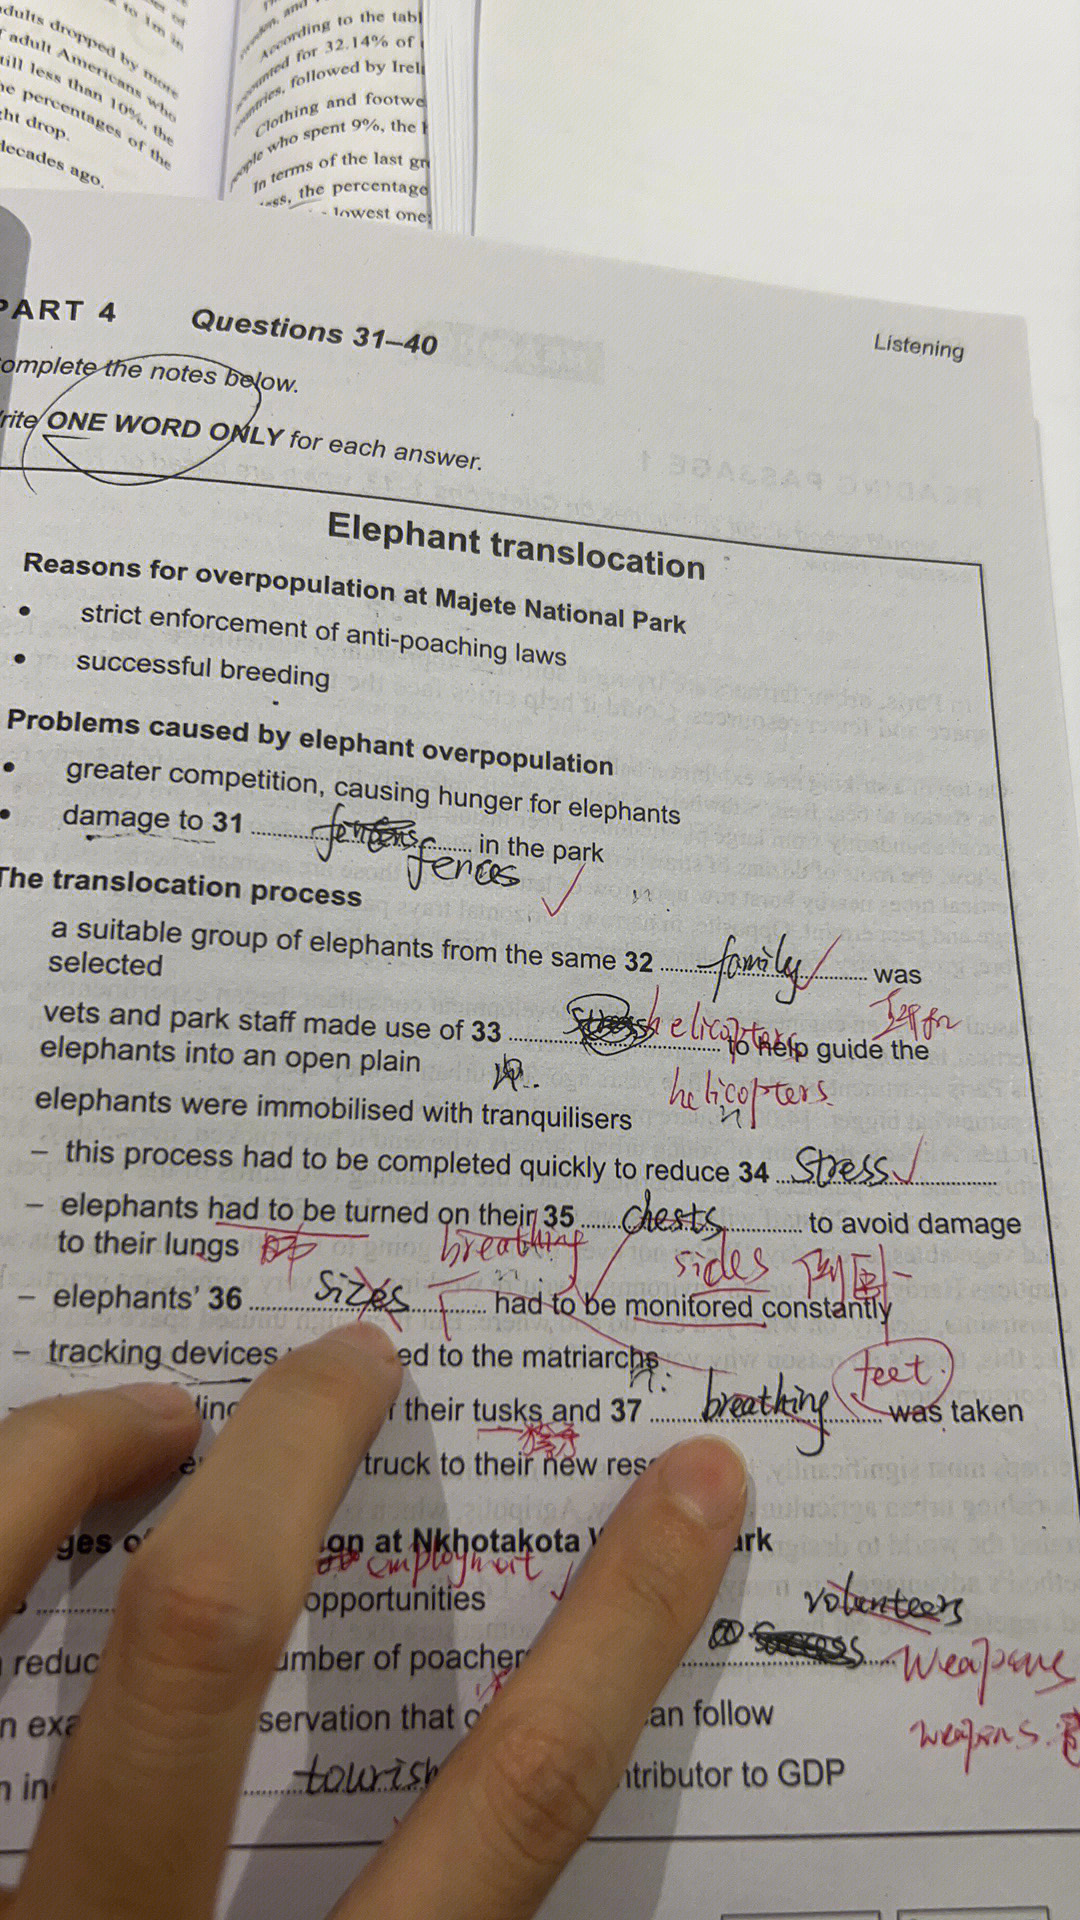 adults dropped by more
adult Americans who
till less than 10%, the
percentages of the
ght drop.
decades ago.
to 1m in
According to the tabl
for 32.14% of
followed by Irel
Clothing and footwe
people who spent 9%, the
In terms of the last gr
the percentage
lowest one
PART 4 Questions 31–40
Listening
omplete the notes below.
rite ONE WORD ONLY for each answer.
READING PASSAGE 1
Elephant translocation
Reasons for overpopulation at Majete National Park
• strict enforcement of anti-poaching laws
• successful breeding
Problems caused by elephant overpopulation
• greater competition, causing hunger for elephants
• damage to 31 in the park
fences
The translocation process
a suitable group of elephants from the same 32 family was
selected
vets and park staff made use of 33 helicopters to help guide the
elephants into an open plain
helicopters.
elephants were immobilised with tranquilisers
– this process had to be completed quickly to reduce 34 stress
– elephants had to be turned on their 35 chests to avoid damage
to their lungs 肺 breathing sides
– elephants' 36 sizes had to be monitored constantly
– tracking devices ed to the matriarchs
feet.
their tusks and 37 breathing was taken
truck to their new res
ges o on at Nkhotakota W ark
employment
opportunities
volunteers
reduc umber of poacher
weapons
n exa servation that o an follow
weapons.
n in touris ntributor to GDP